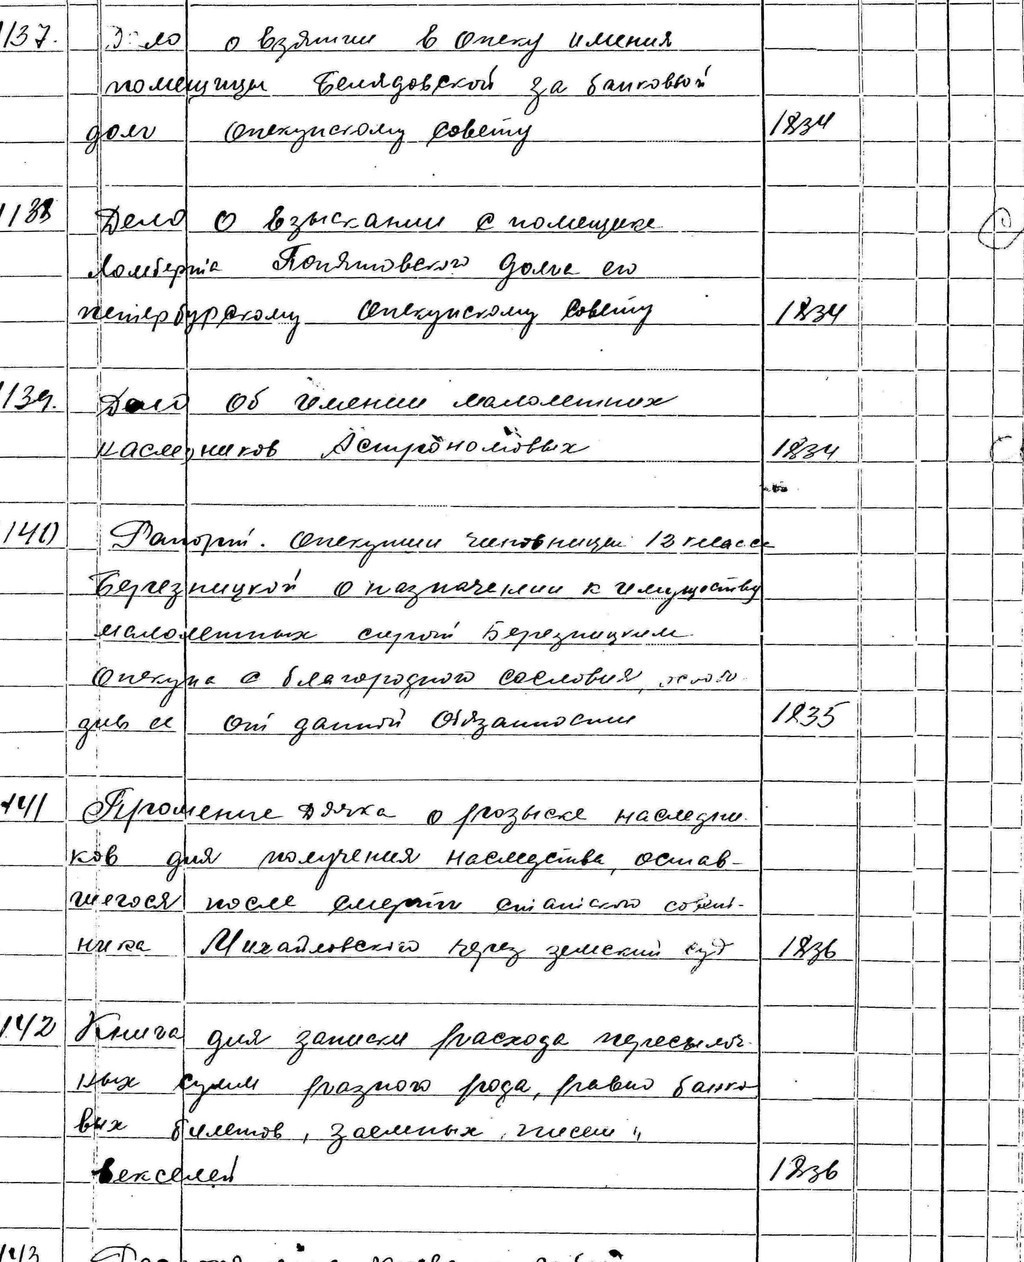 1137. Дело о взятии в опеку имения
помещицы Белядовской за банковый
долг опекунскому совету 1834
1138 Дело о взыскании с помещика
Ломберта Понятовского долга его
петербурскому опекунскому совету 1834
1139. Дело об имении малолетних
наследников Астрономовых 1834
1140 Рапорт. опекунши чиновницы 12 класса
Березницкой о назначении к имуществу
малолетных сирот Березницким
опекуна с благородного сословия,
от данной обязанности 1835
1141 Прошение Дячка о розыске наследни-
ков для получения наследства, остав-
шегося после смерти статского совет-
ника Михайловского через земский суд 1836
1142 Книга для записки расхода пересылоч-
ных сумм разного рода, равно банко
вых билетов, заемных писем,
векселей 1836